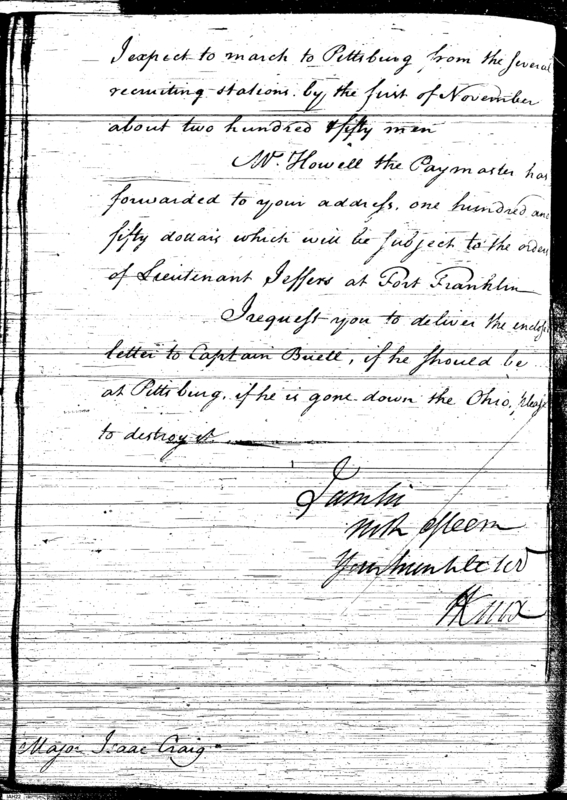 I expect to march to Pittsburg from the several
recruiting stations by the first of November
about two hundred & fifty men
Mr. Howell the Paymaster has
forwarded to your address, one hundred and
fifty dollars which will be subject to the orders
of Lieutenant Jeffers at Fort Franklin
I request you to deliver the enclos
letter to Captain Buell, if he should be
at Pittsburg, if he is gone down the Ohio, please
to destroy it
I am Sir
with esteem
Your humble ser
HKnox
Major Isaac Craig